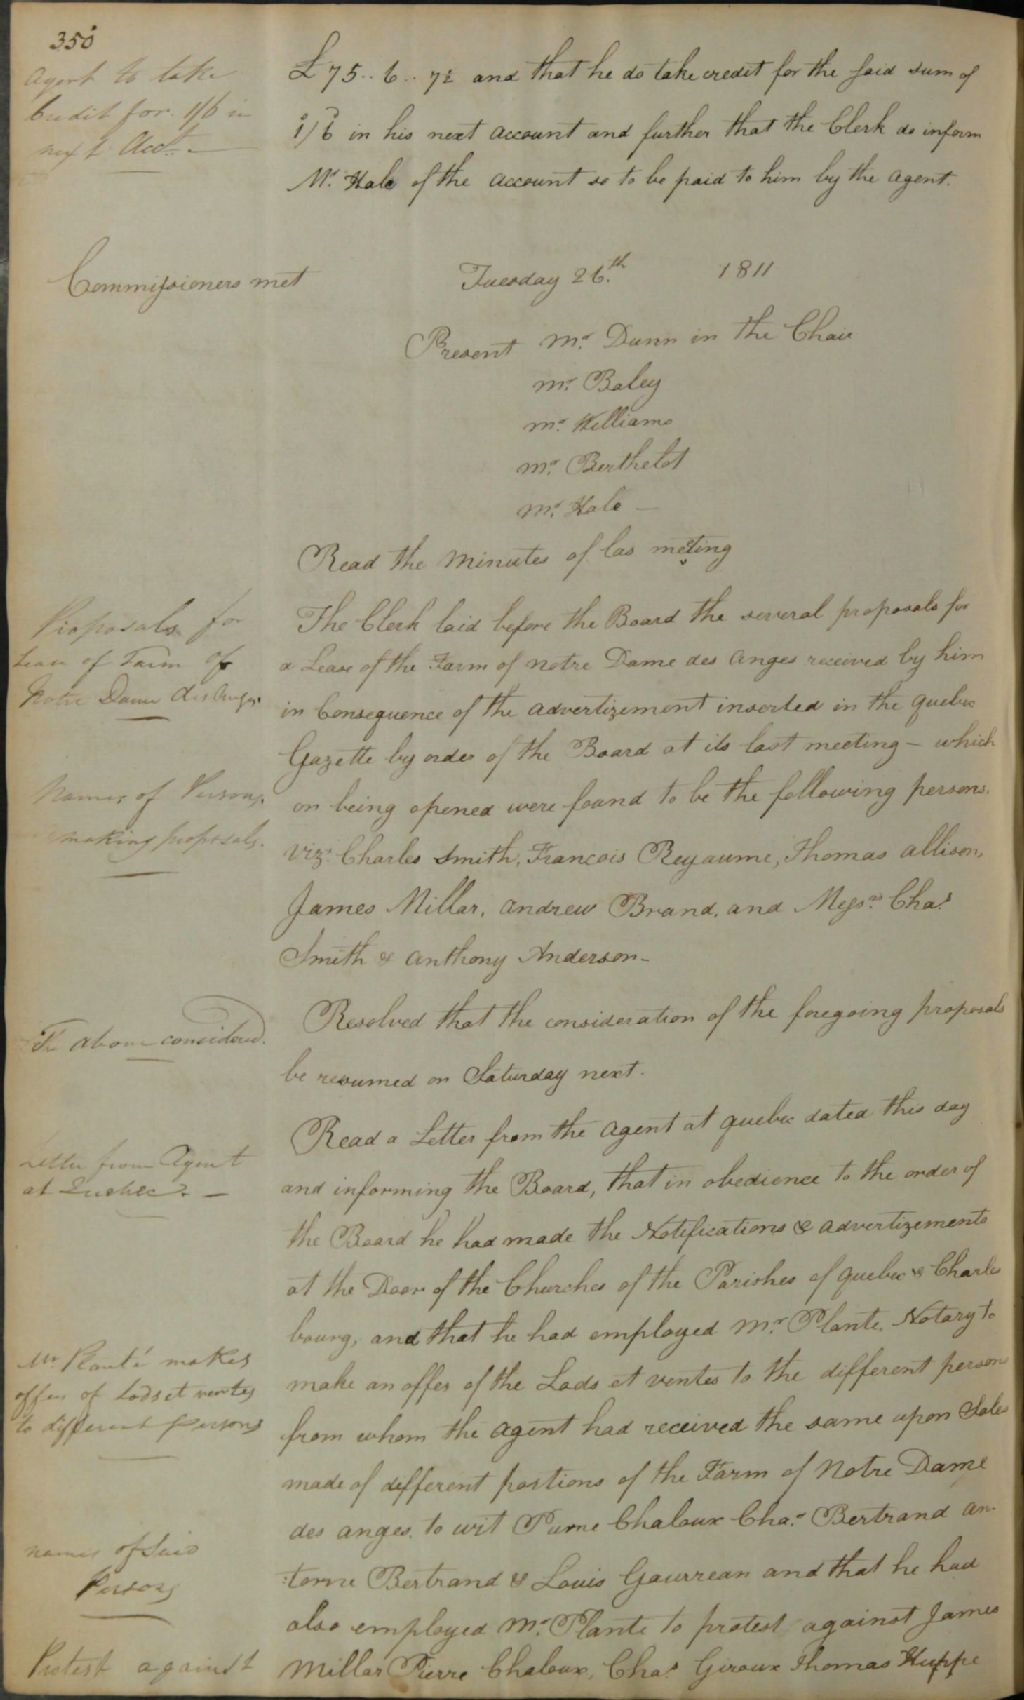 350
Agent to take
Credit for 1/6 in
next Acct.
£75..6..7½ and that he do take credit for the said sum of
1/6 in his next account and further that the Clerk do inform
Mr. Hale of the account so to be paid to him by the agent.
Commissioners met
Tuesday 26th. 1811
Present Mr. Dunn in the Chair
Mr. Baley
Mr. Williams
Mr. Berthelot
Mr. Hale —
Read the minutes of las meeting
Proposals for
Lease of Farm of
Notre Dame des Anges
The Clerk laid before the Board the several proposals for
a Lease of the Farm of notre Dame des anges received by him
in Consequence of the advertizement inserted in the quebec
Gazette by order of the Board at its last meeting — which
Names of Persons
making proposals.
on being opened were found to be the following persons.
vizt. Charles Smith, Francois Reyaume, Thomas allison,
James Millar, andrew Brand, and Messrs. Chas.
Smith & anthony Anderson —
The above considered.
Resolved that the consideration of the foregoing proposals
be resumed on Saturday next.
Letter from Agent
at Quebec. —
Read a Letter from the agent at quebec dated this day
and informing the Board, that in obedience to the order of
the Board he had made the Notifications & advertizements
at the Door of the Churches of the Parishes of quebec & Charles
bourg, and that he had employed Mr. Plante, Notary to
Mr. Planté makes
offer of Lods et ventes
to different persons
make an offer of the Lods et ventes to the different persons
from whom the agent had received the same upon Sales
made of different portions of the Farm of Notre Dame
des anges, to wit Pierre Chaloux Chas. Bertrand an-
names of said
Persons
:toine Bertrand & Louis Gaurreau and that he had
also employed Mr. Plante to protest against James
Protest against
Millar Pierre Chaloux, Chas. Giroux Thomas Huppe